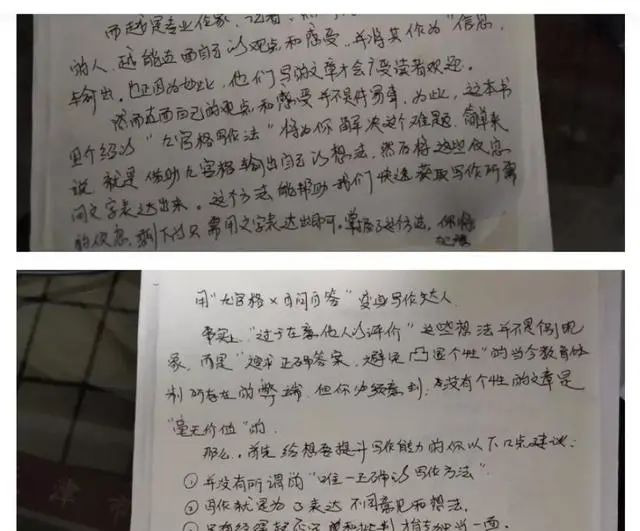 而越是专业作家、记者、
的人，越能直面自己的观点和感受，并将其作为“信息，
输出。也正因为如此，他们写的文章才会广受读者欢迎。
然而直面自己的观点和感受并不是件易事，为此，这本书
介绍的“九宫格写作法”将为你解决这个难题。简单来
说，就是借助九宫格输出自己的想法，然后将这些信息
用文字表达出来。这个方法能帮助我们快速获取写作所需
的信息，剩下的只需用文字表达出即可。掌握了这个方法，你将
用“九宫格×自问自答”变身写作达人
事实上，“过于在意他人的评价”这些想法并不是个别现
象，而是“追求正确答案，避免凸显个性”的当今教育体
制所存在的弊端，但你必须意识到，没有个性的文章是
“毫无价值”的。
那么，首先给想要提升写作能力的你以下几点建议：
①并没有所谓的“唯一正确的写作方法”。
②写作就是为了表达不同意见和想法。